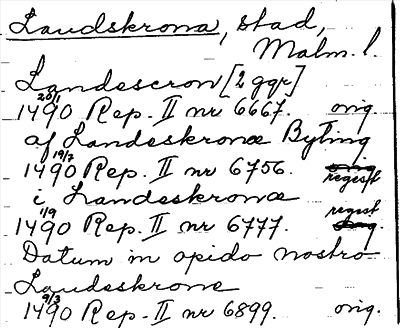 Landskrona, stad,
Malm. l.
Landescron [2 ggr]
20/1
1490 Rep. II nr 6667. orig.
af Landeskronæ Byting
19/7
1490 Rep. II nr 6756. orig. regest
i Landeskronæ
1/9
1490 Rep. II nr 6777. regest orig.
Datum in opido nostro
Landeskrone
9/3
1490 Rep. II nr 6899. orig.